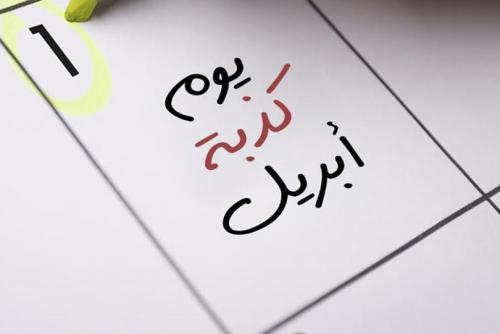 1
يوم
كذبة
أبريل